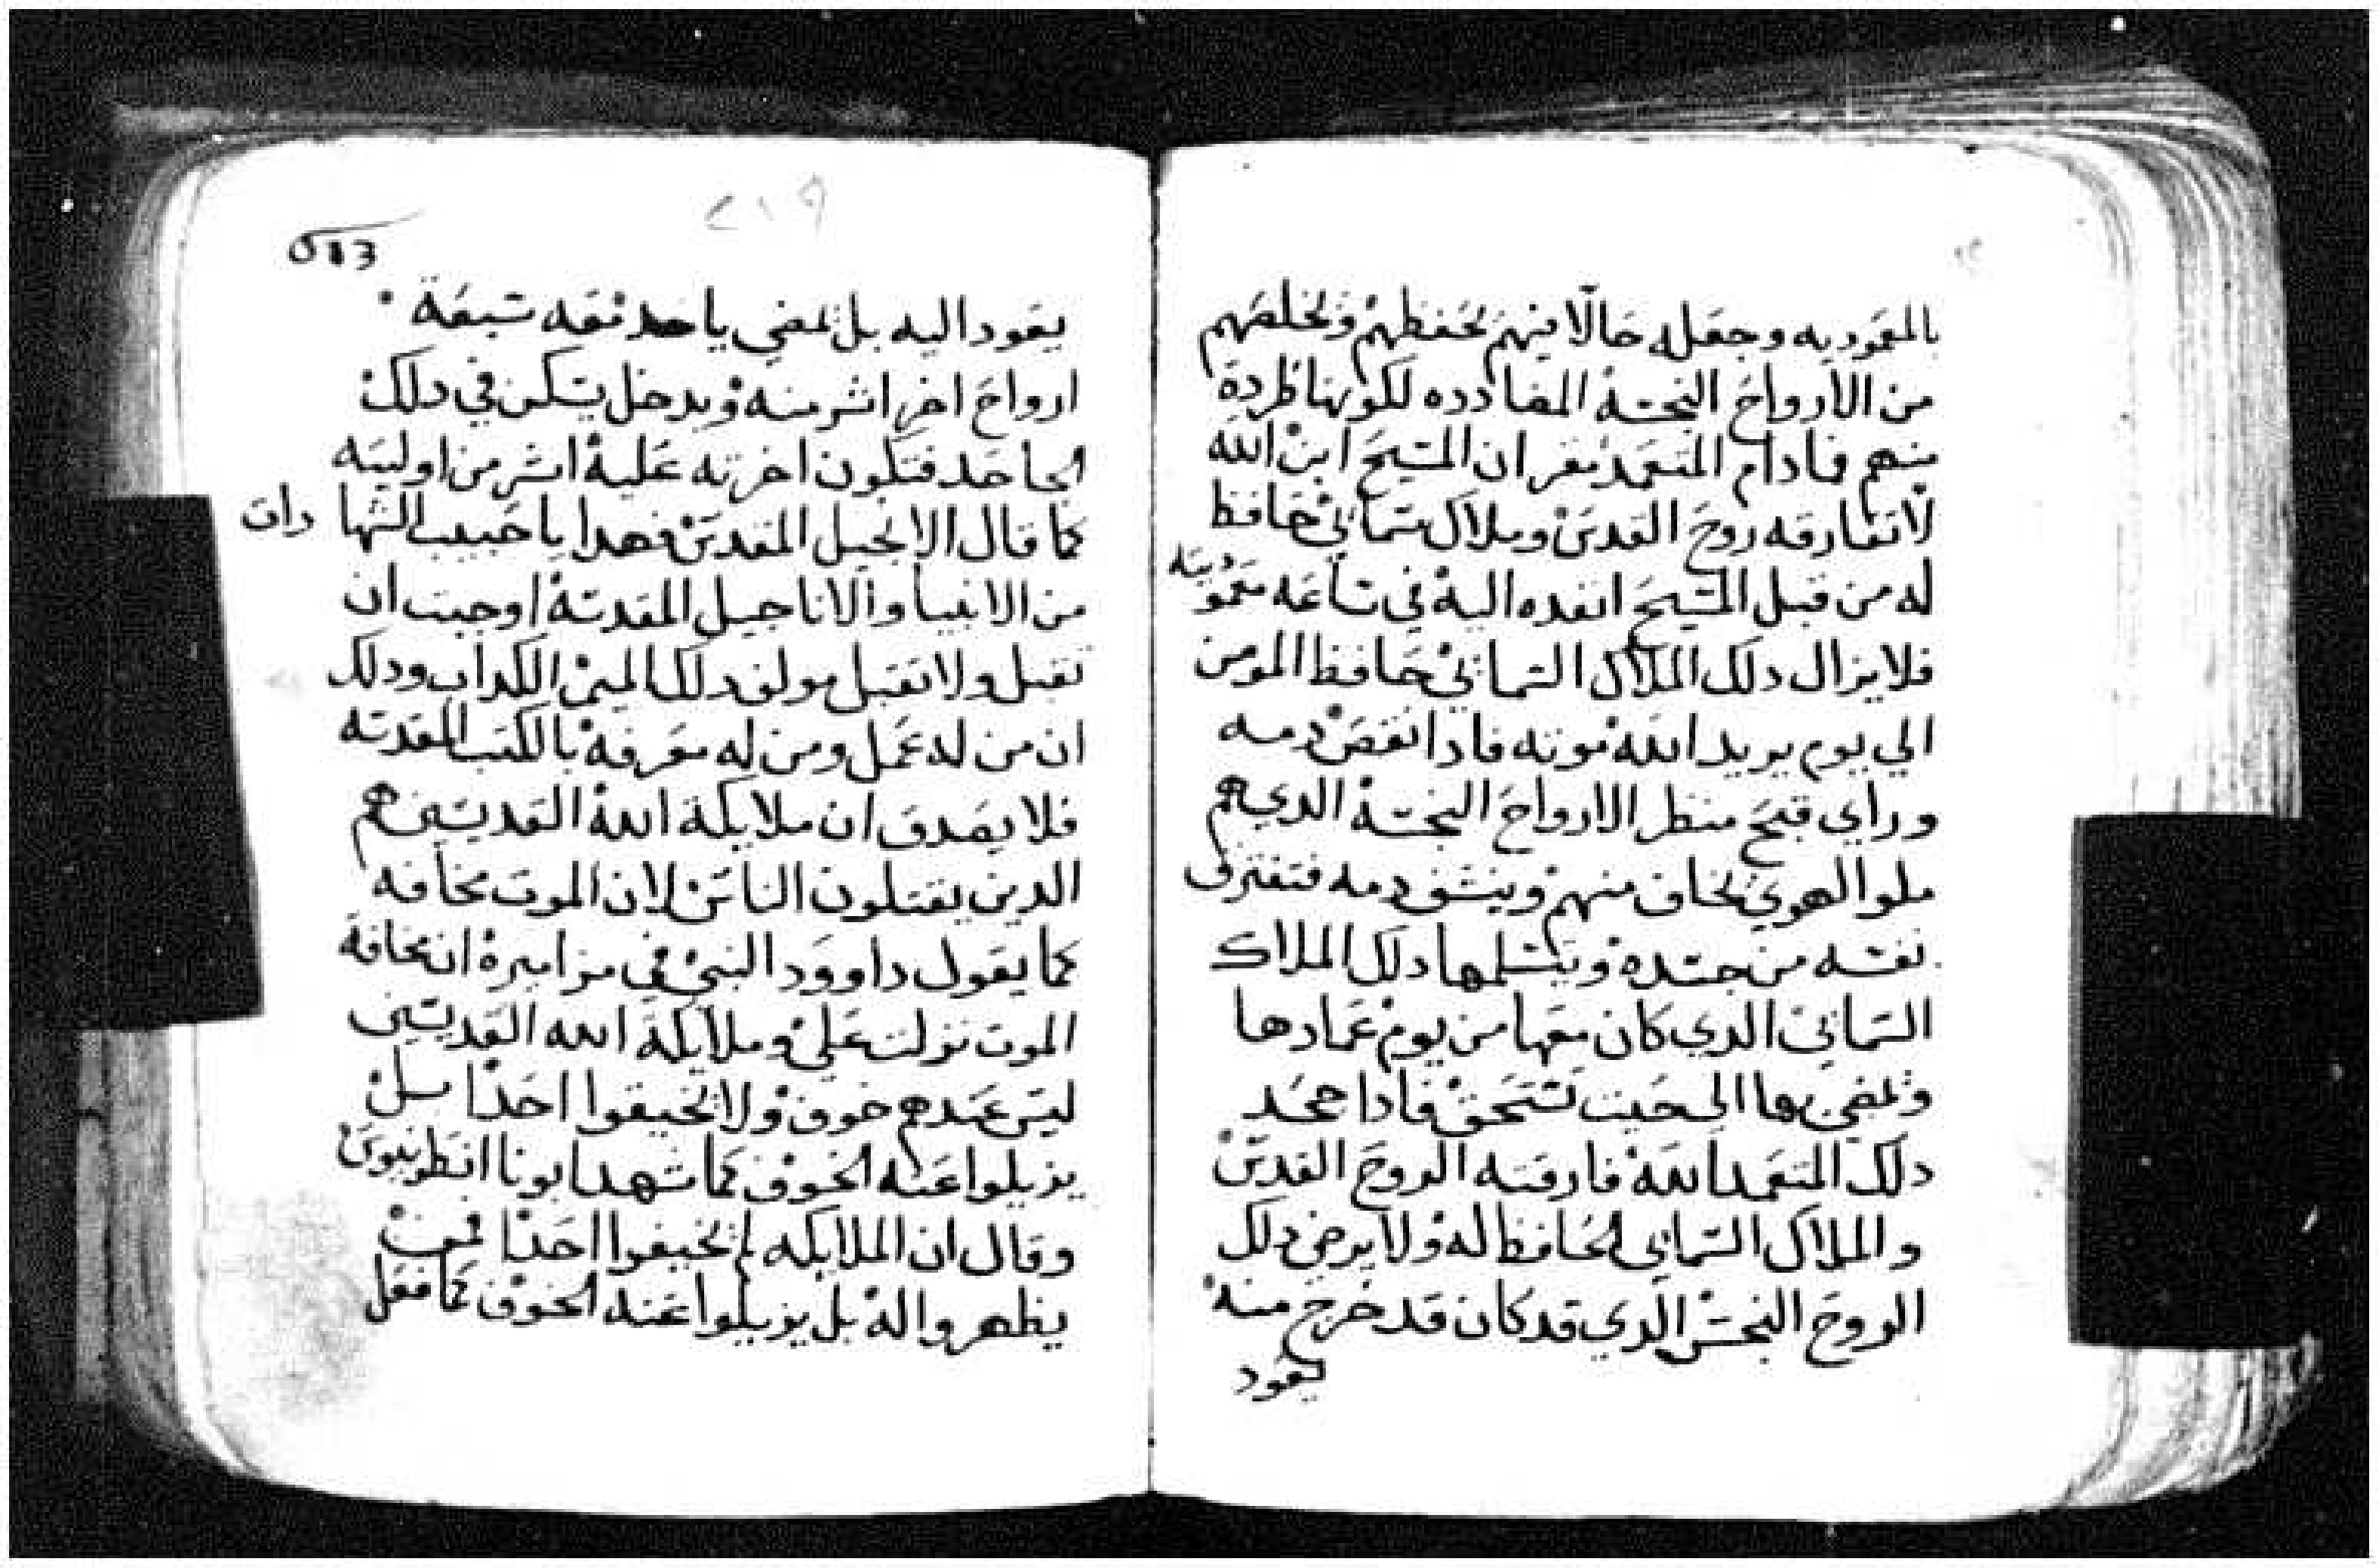 بالمعموديه وجعله حالًا فيهم يحفظهم ويخلصهم
من الارواح النجسة المضادده لكونها طردة
منهم فادام المتعمد يقر ان المسيح ابن الله
لا تفارقه روح القدس وملاك سماني حافظ
له من قبل المسيح انفده اليه في ساعه معموديته
فلا يزال دلك الملاك السماني حافظ المومن
الي يوم يريد الله موته فادا انقض دمه
وراي قبح منظر الارواح النجسة الدي هم
ملو الهوي يخاف منهم وينشف دمه فتفترق
نفسه من جسده ويتسلمها دلك الملاك
السماني الدي كان معها من يوم عمادها
ويمضي بها الى حيت تستحق فادا جحد
دلك المتعمد الله فارقته الروح القدس
والملاك السماني الحافظ له ولا يرضي دلك
الروح النجس الدي قد كان قد خرج منه
يعود
٢١٩
يعود اليه بل يمضي ياخد معه سبعة
ارواح اخر اشر منه ويدخل يسكن في دلك
الجاحد فتكون اخرته عليه اشر من اوليته
كما قال الانجيل المقدس فهدا يا حبيب الشهادات
من الانبيا والاناجيل المقدسة اوجبت ان
تقبل ولا تقبل مولف دلك الميمر الكداب ودلك
ان من له عمل ومن له معرفة بالكتب المقدسه
فلا يصدق ان ملايكة الله القديسين هم
الدين يقتلون الناس لان الموت مخافه
كما يقول داوود النبي في مزاميره ان مخافة
الموت نزلت علي وملايكة الله القديسين
ليس عندهم خوف ولا يخيفوا احدًا بل
يزيلوا عنه الخوف كما شهد ابونا انطونيوس
وقال ان الملايكه لم يخيفوا احدًا ممن
يظهروا له بل يزيلوا عنه الخوف كما فعل